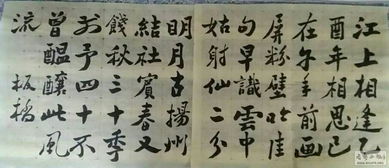 江上相逢乙
酉年相思已
在午年前画
屏粉壁吟佳
句早識雲中
姑射仙二分
明月古揚州
結社賓春又
餞秋三十季
予四十不
曾醖釀此風
流 板橋